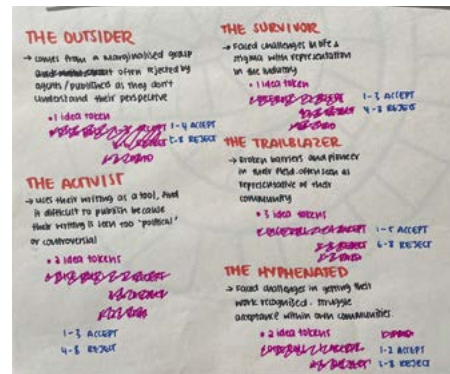 THE OUTSIDER
→ comes from a marginalised group
often rejected by
agents/publishers as they don't
understand their perspective
• 1 idea token
1-4 ACCEPT
5-8 REJECT
THE ACTIVIST
→ uses their writing as a tool, find
it difficult to publish because
their writing is seen too "political"
or controversial
• 2 idea tokens
1-3 ACCEPT
4-8 REJECT
THE SURVIVOR
→ Faced challenges in life &
stigma with representation
in the industry
• 1 idea token
1-3 ACCEPT
4-8 REJECT
THE TRAILBLAZER
→ Broken barriers and pioneer
in their field. often seen as
representative of their
community
• 3 idea tokens
1-5 ACCEPT
6-8 REJECT
THE HYPHENATED
→ Faced challenges in getting their
work recognised. struggle
acceptance within own communities.
• 2 idea tokens
1-2 ACCEPT
3-8 REJECT